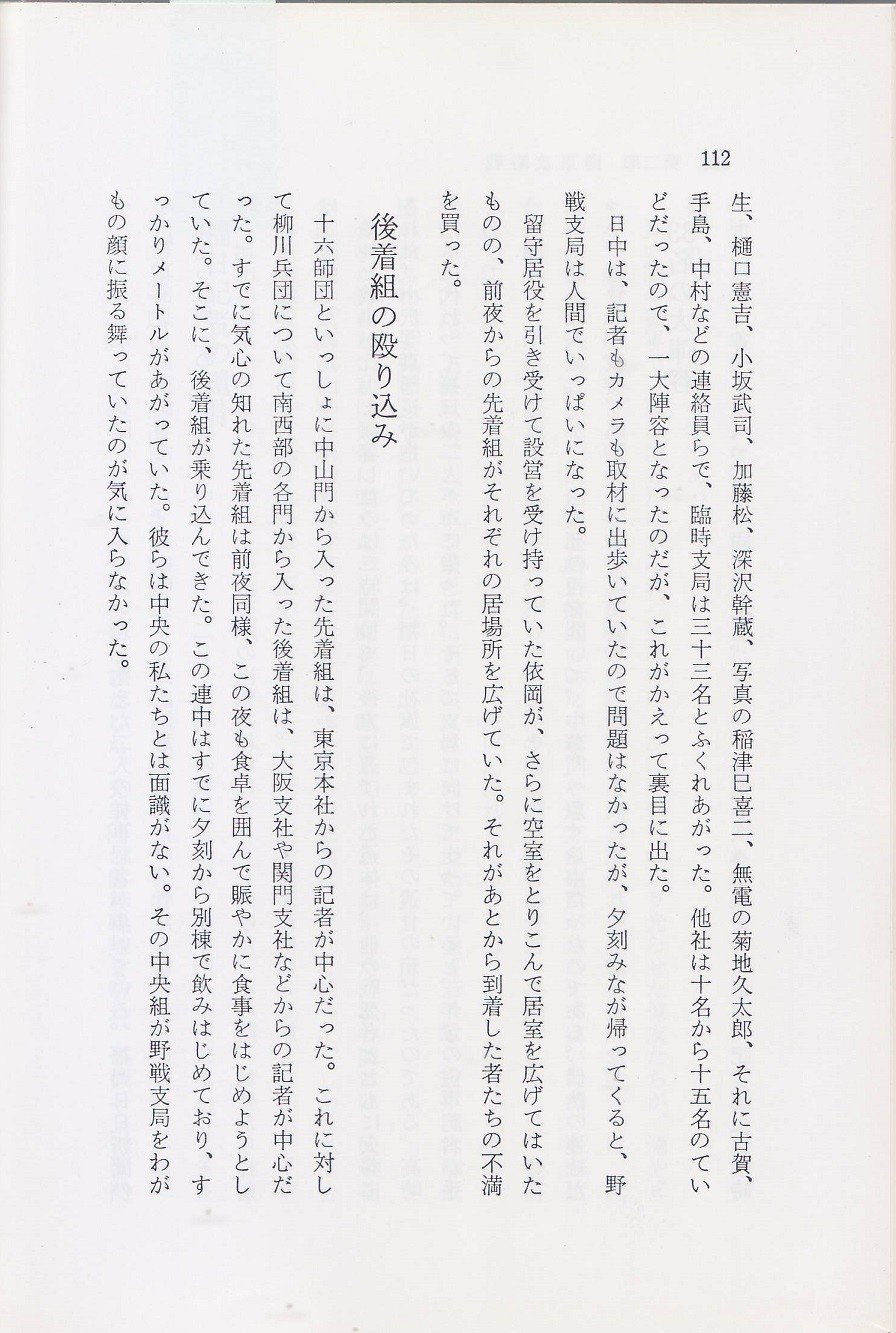 112
生、樋口憲吉、小坂武司、加藤松、深沢幹蔵、写真の稲津巳喜二、無電の菊地久太郎、それに古賀、
手島、中村などの連絡員らで、臨時支局は三十三名とふくれあがった。他社は十名から十五名のてい
どだったので、一大陣容となったのだが、これがかえって裏目に出た。
日中は、記者もカメラも取材に出歩いていたので問題はなかったが、夕刻みなが帰ってくると、野
戦支局は人間でいっぱいになった。
留守居役を引き受けて設営を受け持っていた依岡が、さらに空室をとりこんで居室を広げてはいた
ものの、前夜からの先着組がそれぞれの居場所を広げていた。それがあとから到着した者たちの不満
を買った。
後着組の殴り込み
十六師団といっしょに中山門から入った先着組は、東京本社からの記者が中心だった。これに対し
て柳川兵団について南西部の各門から入った後着組は、大阪支社や関門支社などからの記者が中心だ
った。すでに気心の知れた先着組は前夜同様、この夜も食卓を囲んで賑やかに食事をはじめようとし
ていた。そこに、後着組が乗り込んできた。この連中はすでに夕刻から別棟で飲みはじめており、す
っかりメートルがあがっていた。彼らは中央の私たちとは面識がない。その中央組が野戦支局をわが
もの顔に振る舞っていたのが気に入らなかった。